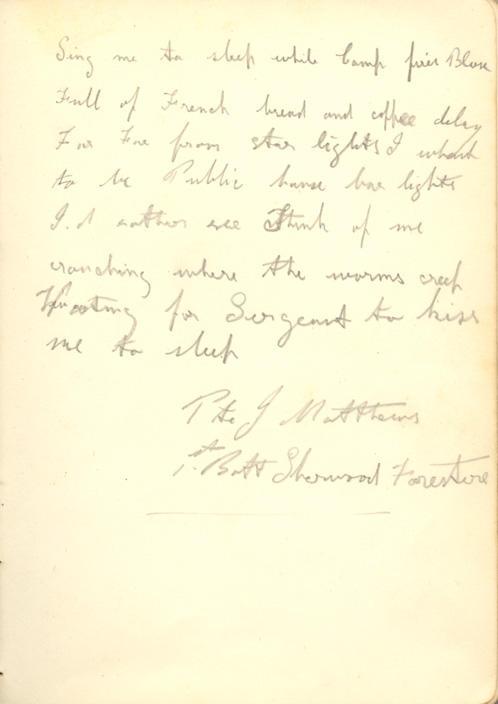 Sing me to sleep while Camp fires Blase
Full of French bread and coffee delay
Far Far from star lights I whant
to be Public house bar lights
I. d rather see Think of me
crouching where the worms creep
Waiting for Sergeant to kiss
me to sleep
Pte J Matthews
1st Batt Sherwood Foresters